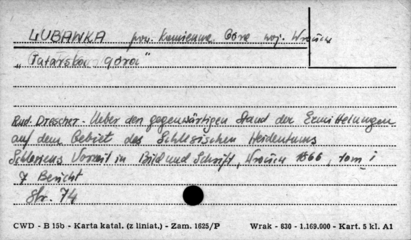 LUBAWKA pow. Kamienna Góra woj. Wrocław
„Tatarska góra"
Rud. Drescher - Ueber den gegenwärtigen Stand der Ermittelungen
auf dem Gebiet des Schlesischen Heidentums
Schlesiens Vorzeit in Bild und Schrift, Wrocław 1866, tom I
7 Bericht
Str. 74
CWD - B 15b - Karta katal. (z liniat.) - Zam. 1625/P Wrak - 830 - 1.169.000 - Kart. 5 kl. A1